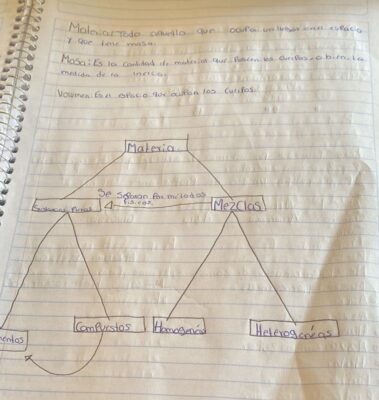 Materia: Todo aquello que ocupa un lugar en el espacio
y que tiene masa.
Masa: Es la cantidad de materia que poseen los cuerpos o bien la
medida de la inercia.
Volumen: Es el espacio que ocupan los cuerpos.
Materia
Se separan por métodos
físicos
Sustancias Puras
Mezclas
Compuestos
Homogenias
Heterogenéas
mentos